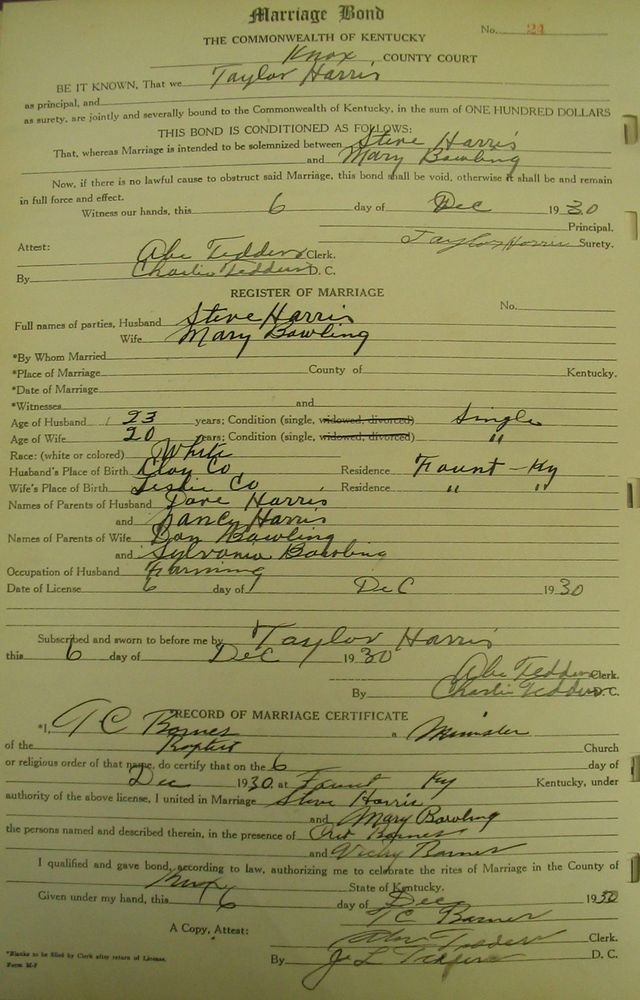 Marriage Bond
No. 21
THE COMMONWEALTH OF KENTUCKY
Knox COUNTY COURT
BE IT KNOWN, That we Taylor Harris
as principal, and
as surety, are jointly and severally bound to the Commonwealth of Kentucky, in the sum of ONE HUNDRED DOLLARS
THIS BOND IS CONDITIONED AS FOLLOWS:
That, whereas Marriage is intended to be solemnized between Steve Harris
and Mary Bowling
Now, if there is no lawful cause to obstruct said Marriage, this bond shall be void, otherwise it shall be and remain
in full force and effect.
Witness our hands, this 6 day of Dec 1930
Principal.
Taylor Harris Surety.
Attest: Abe Tedders Clerk.
By Charlie Tedders D. C.
REGISTER OF MARRIAGE
No.
Full names of parties, Husband Steve Harris
Wife Mary Bowling
*By Whom Married
*Place of Marriage County of Kentucky.
*Date of Marriage
*Witnesses and
Age of Husband 23 years; Condition (single, widowed, divorced) Single
Age of Wife 20 years; Condition (single, widowed, divorced) "
Race: (white or colored) White
Husband's Place of Birth Clay Co Residence Fount - Ky
Wife's Place of Birth Leslie Co Residence " "
Names of Parents of Husband Dave Harris
and Nancy Harris
Names of Parents of Wife Dan Bowling
and Sylvania Bowling
Occupation of Husband Farming
Date of License 6 day of Dec 1930
Subscribed and sworn to before me by Taylor Harris
this 6 day of Dec 1930
Abe Tedders Clerk.
By Charlie Tedders D. C.
RECORD OF MARRIAGE CERTIFICATE
*I, T C Barnes a Minister
of the Baptist Church
or religious order of that name, do certify that on the 6 day of
Dec 1930, at Fount Ky Kentucky, under
authority of the above license, I united in Marriage Steve Harris
and Mary Bowling
the persons named and described therein, in the presence of Barnes
and Barnes
I qualified and gave bond, according to law, authorizing me to celebrate the rites of Marriage in the County of
Knox State of Kentucky.
Given under my hand, this 6 day of Dec 1930
T C Barnes
A Copy, Attest: Tedders Clerk.
By D. C.
*Blanks to be filled by Clerk after return of License.
Form M-F